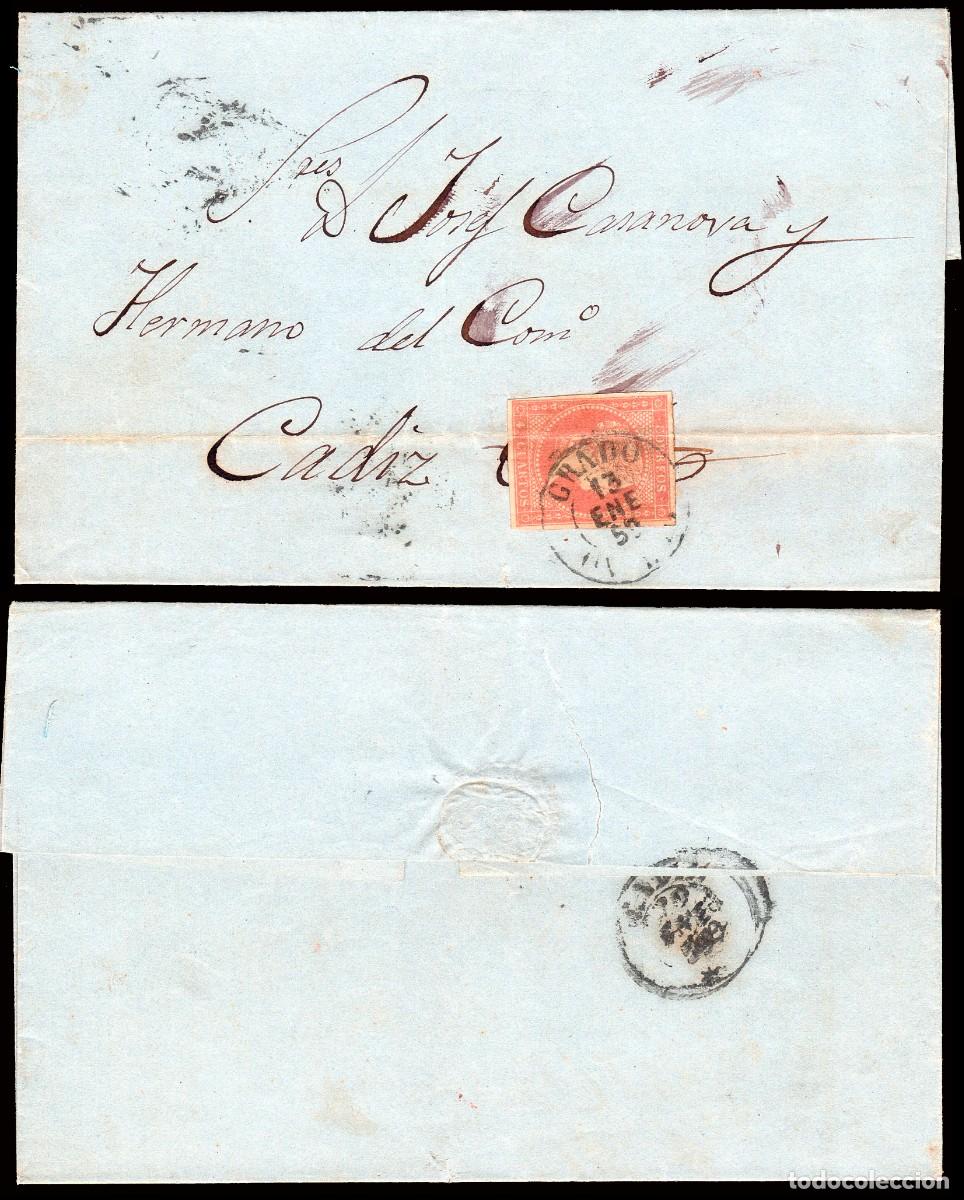 Sres
D. José Casanova y
Hermano del Como
Cadiz
4 CUARTOS
CORREOS
GRADO
13
ENE
todocoleccion